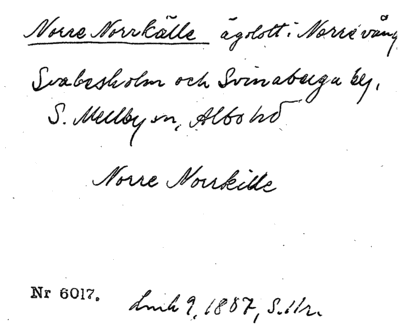 Norre Norrkälle ägolott i Norrevång
Svabesholm och Svinaberga by,
S. Mellby sn, Albo hd
Norre Norrkille
Nr 6017. Lmh 9, 1807, S. Hr.